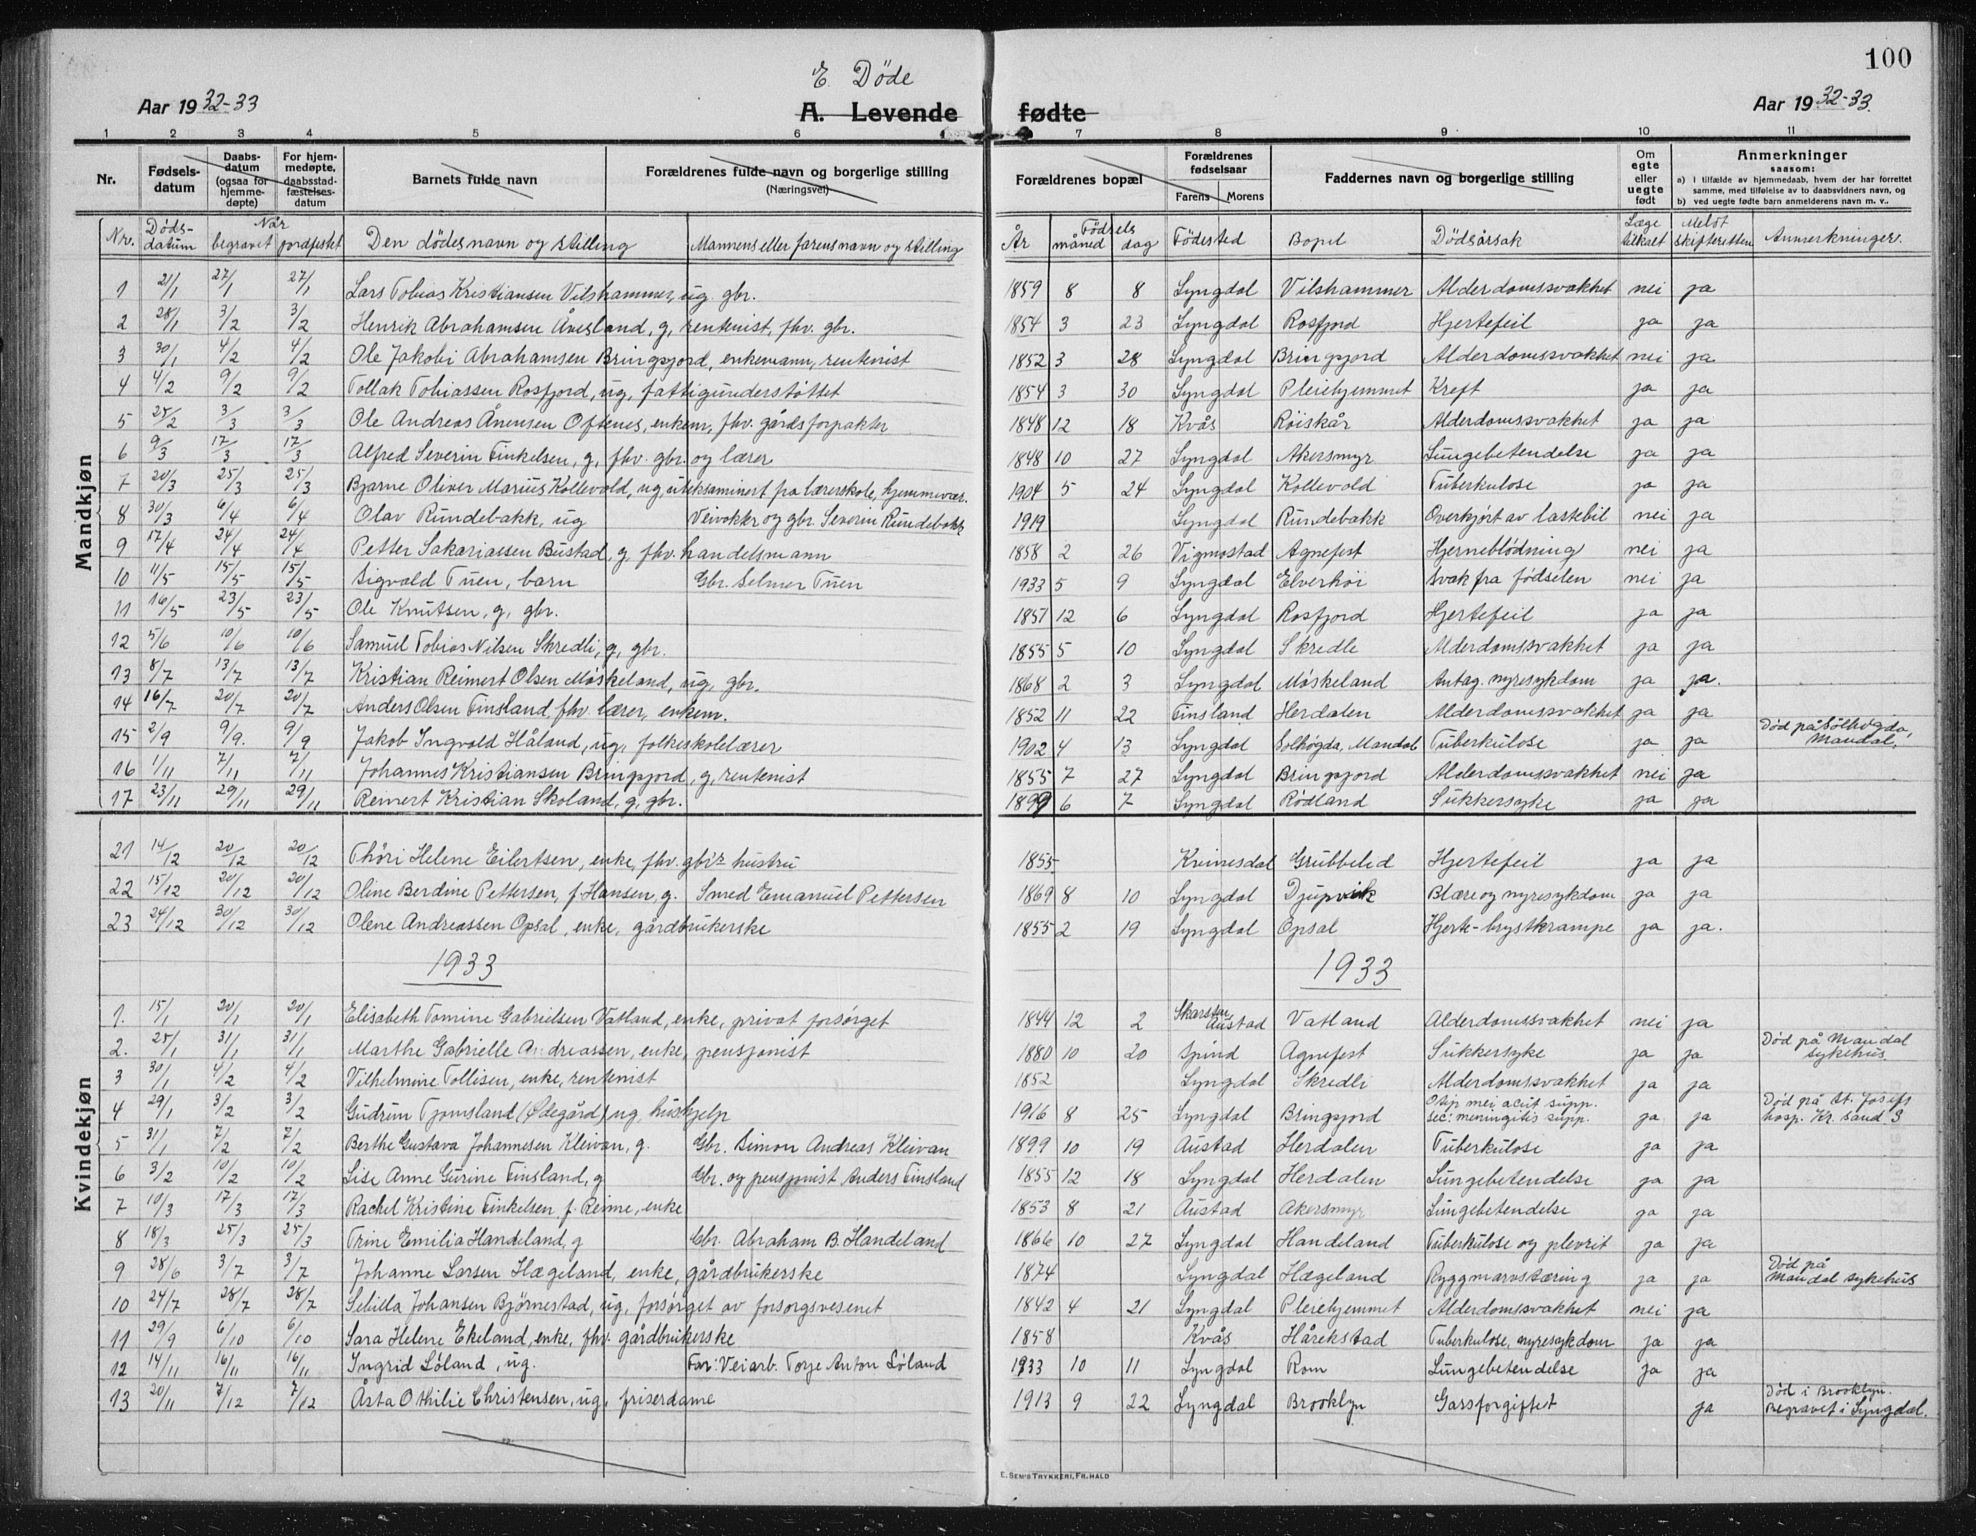 E. Døde
100
Aar 1932-33
A. Levende fødte
Aar 1932-33.
1 2 3 4 5 6 7 8 9 10 11
Nr. Fødselsdatum Daabsdatum (ogsaa for hjemmedøpte) For hjemmedøpte, daabsstadfæstelsesdatum Barnets fulde navn Forældrenes fulde navn og borgerlige stilling (Næringsvei) Forældrenes bopæl Forældrenes fødselsaar Farens Morens Faddernes navn og borgerlige stilling Om egte eller uegte født Anmerkninger saasom: a) i tilfælde av hjemmedaab, hvem der har forrettet samme, med tilføielse av to daabsvidners navn, og b) ved uegte fødte barn anmelderens navn m. v..
Nr. Dødsdatum Når begravet jordfestet Den dødes navn og stilling Mannens eller farens navn og stilling År Fødsels måned dag Fødested Bopel Dødsårsak Læge tilkalt Meldt skifteretten Anmerkninger.
Mandkjøn
1 21/1 27/1 27/1 Lars Tobias Kristiansen Vilshammer, ug. gbr. 1859 8 8 Lyngdal Vilshammer Alderdomssvakhet nei ja
2 28/1 3/2 3/2 Henrik Abrahamsen Åvesland, g, rentenist, fhv. gbr. 1854 3 23 Lyngdal Rosfjord Hjertefeil ja ja
3 30/1 4/2 4/2 Ole Jakobi Abrahamsen Bringsjord, enkemann, rentenist 1852 3 28 Lyngdal Bringsjord Alderdomssvakhet nei ja
4 4/2 9/2 9/2 Tollak Tobiassen Rosfjord, ug, fattigunderstøttet 1854 3 30 Lyngdal Pleiehjemmet Kreft ja ja
5 25/2 3/3 3/3 Ole Andreas Ånensen Oftenes, enkem, fhv. gårdsforpakter 1848 12 18 Kvås Röiskår Alderdomssvakhet ja ja
6 9/3 17/3 17/3 Alfred Severin Finkelsen, g, fhv. gbr. og lærer 1848 10 27 Lyngdal Akersmyr Lungebetendelse ja ja
7 20/3 25/3 25/3 Bjarne Oliver Marius Kollevold, ug uteksaminert fra lærerskole, hjemmevær. 1904 5 24 Lyngdal Kollevold Tuberkulose ja ja
8 30/3 6/4 6/4 Olav Rundebakk, ug Veivokter og gbr. Severin Rundebakk 1919 Lyngdal Rundebakk Overkjørt av lastebil nei ja
9 17/4 24/4 24/4 Petter Sakariassen Bustad, g, fhv. handelsmann 1858 2 26 Vigmostad Agnefest Hjerneblödning nei ja
10 11/5 15/5 15/5 Sigvald Tuen, barn Gbr. Selmer Tuen 1933 5 9 Lyngdal Elverhöi svak fra fødselen nei ja
11 16/5 23/5 23/5 Ole Knutsen, g, gbr. 1851 12 6 Lyngdal Rosfjord Hjertefeil ja ja
12 5/6 10/6 10/6 Samuel Tobias Nilsen Skredli, g, gbr. 1855 5 10 Lyngdal Skredle Alderdomssvakhet ja ja
13 8/7 13/7 13/7 Kristian Reinert Olsen Møskeland, ug, gbr. 1868 2 3 Lyngdal Møskeland Antag. nyresykdom ja ja.
14 16/7 20/7 20/7 Anders Olsen Finsland, fhv. lærer, enkem. 1852 11 22 Finsland Herdalen Alderdomssvakhet ja ja
15 2/9 9/9. 9/9 Jakob Ingvald Håland, ug, folkeskolelærer 1902 4 13 Lyngdal Solhøgda, Mandal Tuberkulose ja ja Død på Solhøgda, Mandal.
16 1/11 7/11 7/11 Johannes Kristiansen Bringsjord, g, rentenist 1855 7 27 Lyngdal Bringsjord Alderdomssvakhet nei ja
17 23/11 29/11 29/11 Reinert Kristian Skoland, g, gbr. 1899 6 7 Lyngdal Rödland Sukkersyke ja ja
Kvindekjøn
21 14/12 20/12 20/12 Thöri Helene Eilertsen, enke, fhv. gb's hustru 1855 Kvinesdal Grubbeled Hjertefeil ja ja
22 15/12 20/12 20/12 Oline Berdine Pettersen, f. Hansen, g. Smed Emanuel Pettersen 1869 8 10 Lyngdal Djupvik Blære og nyresykdom ja ja
23 24/12 30/12 30/12 Olene Andreassen Opsal, enke, gårdbrukerske 1855 2 19 Lyngdal Opsal Hjerte-brystkrampe ja ja.
1933 1933
1. 15/1 20/1 20/1 Elisabeth Tomine Gabrielsen Vatland, enke, privat forsørget 1844 12 2 Austad Vatland Alderdomssvakhet nei ja
2. 25/1 31/1 31/1 Marthe Gabrielle Andreassen, enke, pensjonist 1880 10 20 Spind Agnefest Sukkersyke ja ja Død på Mandal sykehus
3 30/1 4/2 4/2 Vilhelmine Tollisen, enke, rentenist 1852 Lyngdal Skredli Alderdomssvakhet ja ja
4 29/1 3/2 3/2 Gudrun Tjomsland (Ødegård) ug, hushjelp 1916 8 25 Lyngdal Bringsjord Otip mei acut supp. sec: meningitis supp. ja ja Død på St. Josefs hosp. Kr. sand S
5 31/1 7/2 7/2 Berthe Gustava Johannesen Kleivan, g. Gbr. Simon Andreas Kleivan 1899 10 19 Austad Herdalen Tuberkulose ja ja
6 3/2 10/2 10/2 Lise Anne Gurine Finsland, g Gbr. og pensjonist Anders Finsland 1855 12 18 Lyngdal Herdalen Lungebetendelse ja ja
7 10/3 17/3 17/3 Rachel Kristine Finkelsen f. Reime, enke 1853 8 21 Austad Akersmyr Lungebetendelse ja ja
8 18/3 25/3 25/3 Trine Emilia Handeland, g Gbr. Abraham B. Handeland 1866 10 27 Lyngdal Handeland Tuberkulose og plevrit ja ja
9 28/6 3/7 3/7 Johanne Larsen Hægeland, enke, gårdbrukerske 1874 Lyngdal Hægeland Ryggmarvstæring ja ja Død på Mandal sykehus
10 24/7 28/7 28/7 Selida Johansen Björnestad, ug, forsørget av forsorgsvesenet 1842 4 21 Lyngdal Pleiehjemmet Alderdomssvakhet nei ja
11 29/9 6/10 6/10 Sara Helene Ekeland, enke, fhv. gårdbrukerske 1858 Kvås Hårekstad Tuberkulose, nyresykdom ja ja
12 14/11 16/11 16/11 Ingrid Löland, ug. Far: Veiarb. Torje Anton Löland 1933 10 11 Lyngdal Rom Lungebetendelse ja ja
13 20/11 7/12 7/12 Åsta Othilie Christensen, ug, friserdame 1913 9 22 Lyngdal Brooklyn Gassforgiftet ja Død i Brooklyn. Begravet i Lyngdal.
E. SEM'S TRYKKERI, FR.HALD